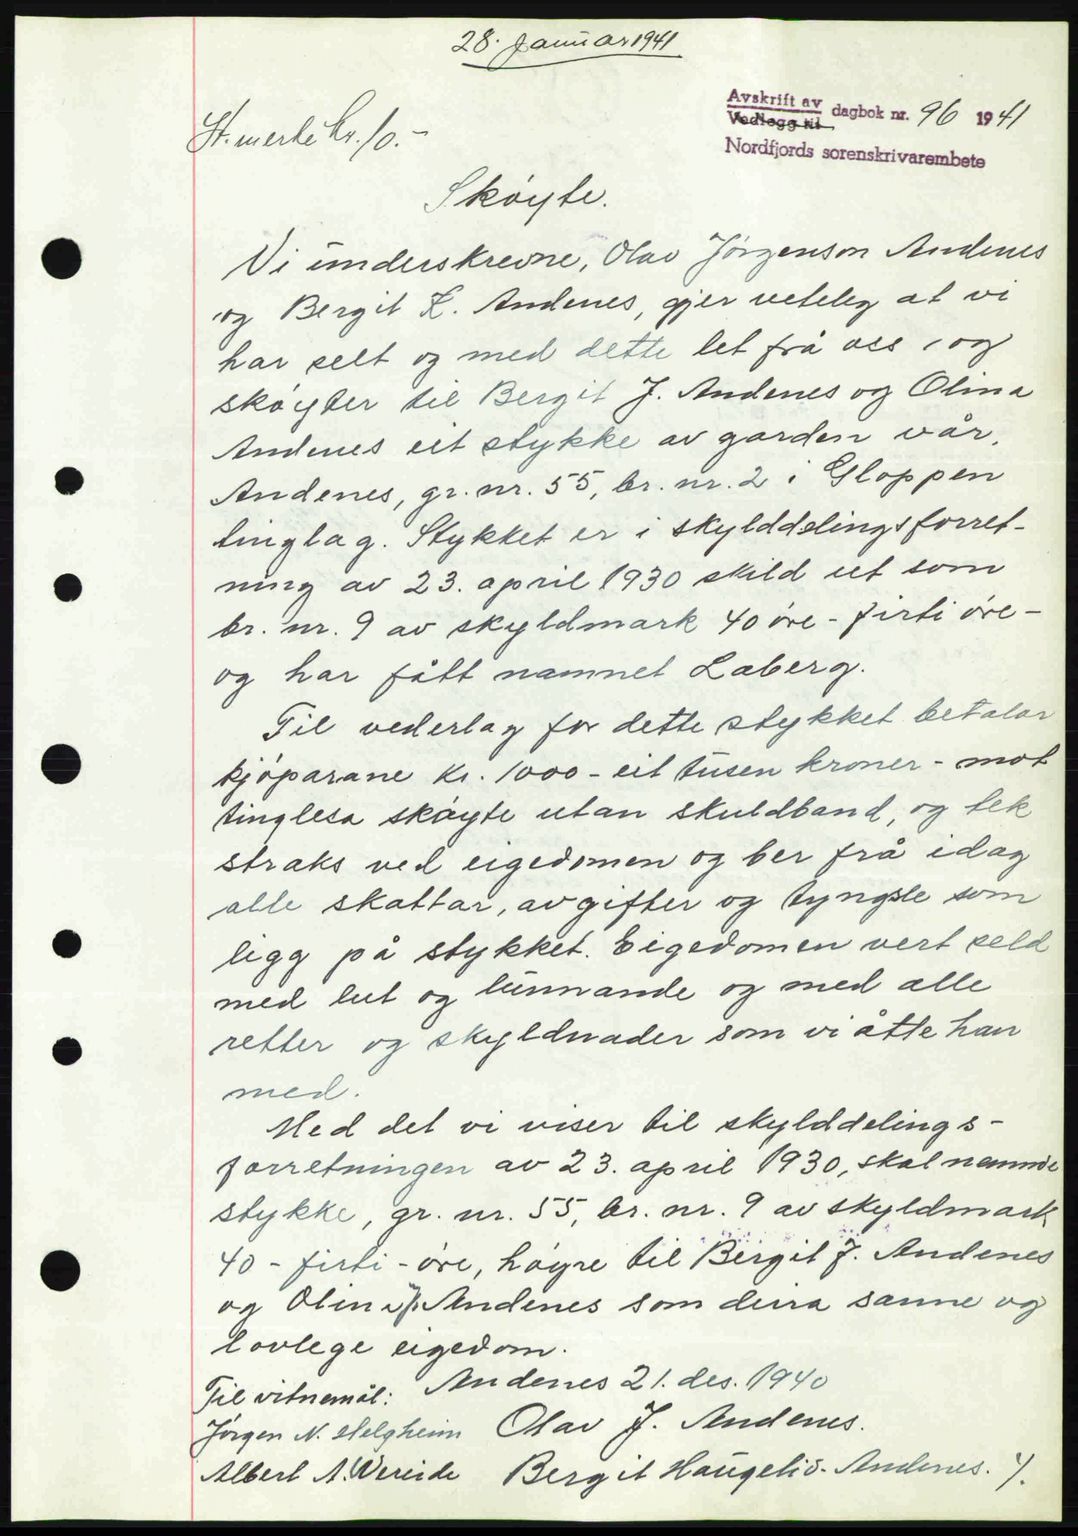 28. januar 1941
Avskrift av dagbok nr. 96 1941
Vedlegg til
Nordfjords sorenskrivarembete
St. merke kr. 10.-
Skøyte.
Vi underskrevne, Olav Jørgenson Andenes
og Bergit K. Andenes, gjer veteleg at vi
har selt og med dette let frå oss, og
skøyter til Bergit J. Andenes og Olina
Andenes eit stykke av garden vår,
Andenes, gr. nr. 55, br. nr. 2 i Gloppen
tinglag. Stykket er i skylddelingsforret-
ning av 23. april 1930 skild ut som
br. nr. 9 av skyldmark 40 øre - firti øre -
og har fått namnet Laberg.
Til vederlag for dette stykket betalar
kjøparane kr. 1000 - eit tusen kroner - mot
tinglesa skøyte utan skuldband, og tek
straks ved eigedomen og ber frå idag
alle skattar, avgifter og tyngsle som
ligg på stykket. Eigedomen vert seld
med lut og lunnande og med alle
retter og skyldnader som vi åtte han
med.
Med det vi viser til skylddelings-
forretningen av 23. april 1930, skal nemnde
stykke, gr. nr. 55, br. nr. 9 av skyldmark
40 - firti - øre, høyre til Bergit J. Andenes
og Olina J. Andenes som deira sanne og
lovlege eigedom.
Andenes 21. des. 1940
Til vitnemål:
Jørgen N. Helgheim Olav J. Andenes.
Albert A. Vereide Bergit Haugelid-Andenes. ⁒